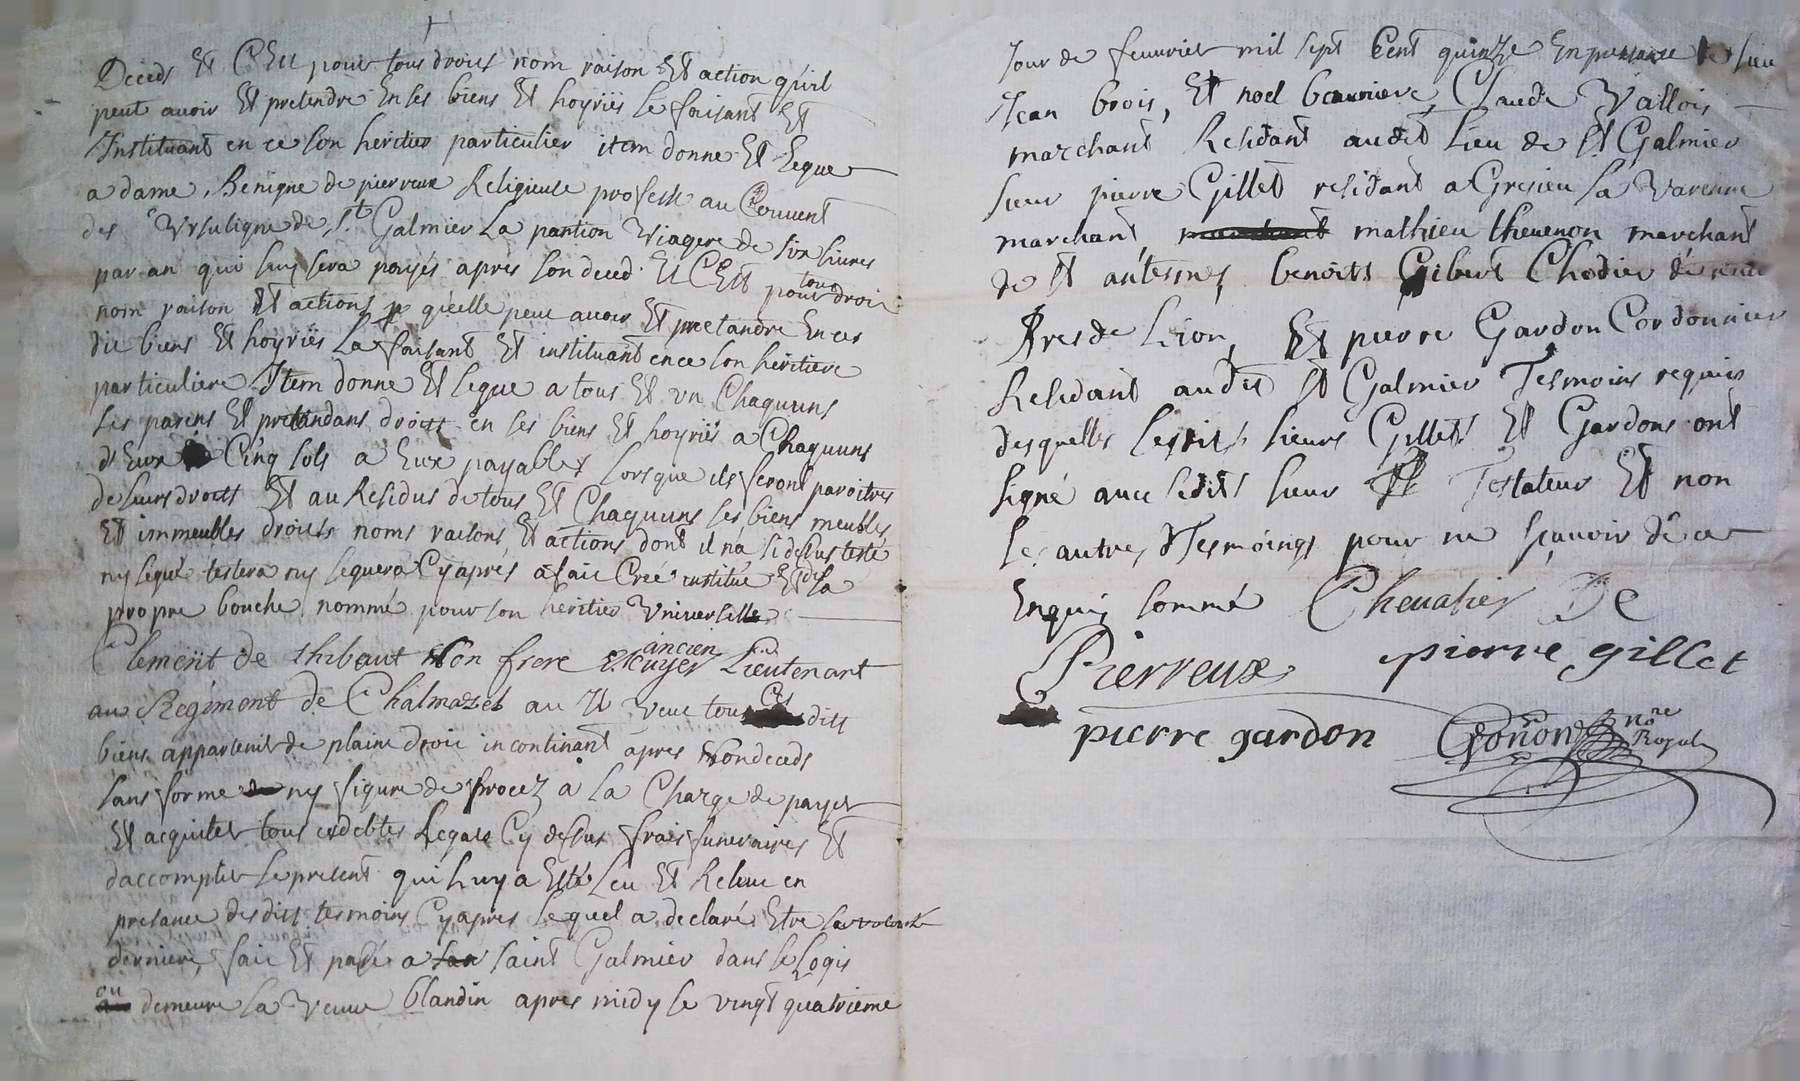 Deceds Et C'Est pour tous droits nom raison Et action qu'il
peut avoir Et pretendre En ses biens Et hoyriës le faisant Et
Instituant en ce son heritier particulier item donne Et legue
a dame Benigne de pierreux Religieuse professe au Couvent
des Ursuligne de St Galmier La pantion Viagere de six livres
par an qui luy sera payés apres son deced Et C'Est pour tous droit
nom raison Et actions qu'elle peut avoir Et pretandre En ces
dit biens Et hoyriës La faisant Et instituant en ce son heritiere
particuliere Item donne Et legue a tous Et un Chaquuns
les parens Et pretandans droits en ses biens Et hoyriës a Chaquuns
d'Eux Cinq sols a Eux payables lorsque ils feront paroitres
de leurs droits Et au Residus de tous Et Chaquuns ses biens meubles
Et immeubles droits noms raisons Et actions dont il n'a si dessus testé
ny legué testera ny leguera Cy aprés a fait Creé institué Et de sa
propre bouche nommé pour son heritier Universelle
Clement de thibaut Son frere Escuyer ancien Lieutenant
au Regiment de Chalmazel au Veut tous Ces dits
biens appartenir de plain droit incontinant apres Son deceds
sans forme ny figure de procez a la Charge de payer
Et acquiter tous debtes Legats Cy dessus frais funeraires Et
d'accomplir le present qui luy a Esté Leu Et Releue en
presance desdits tesmoins Cy apres lequel a declaré Etre sa volonté
derniere, fait Et passé a saint Galmier dans le Logis
ou demeure la Veuve blandin apres midy le vingt quatrieme
Jour de feuvrier mil sept Cent quinze En presance de sieu
Jean brois, Et noel Claude Vallois
marchant Residant audit Lieu de St Galmier
sieur pierre Gillet residant a Gresieu la Varenne
marchant, marchant mathieu thevenon marchant
de St benoits Gibert Chodier
Pres de Lion, Et pierre Gardon Cordonnier
Residant audit St Galmier Tesmoins requis
desquelles lesdits sieurs Gillet Et Gardons ont
signé avec ledit sieur Testateur Et non
les autres Tesmoings pour ne sçavoir de ce
Enquis sommé Chevalier De
Pierreux pierre gillet
pierre gardon Gonon nore
Royal